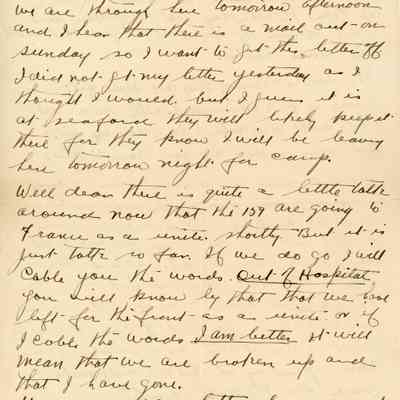 we are through here tomorrow afternoon
and I hear that there is a mail out on
sunday so I want to get this letter off
I did not get my letter yesterday as I
thought I would but I guess it is
at seaford they will likely keep it
there for they know I will be leaving
here tomorrow night for camp.
Well dear there is quite a little talk
around now that the 159 are going to
France as a unite shortly But it is
just talk so far. If we do go I will
Cable you the words. Out of Hospital
you will know by that that we have
left for the front as a unite or if
I cable the words I am better it will
mean that we are broken up and
that I have gone.